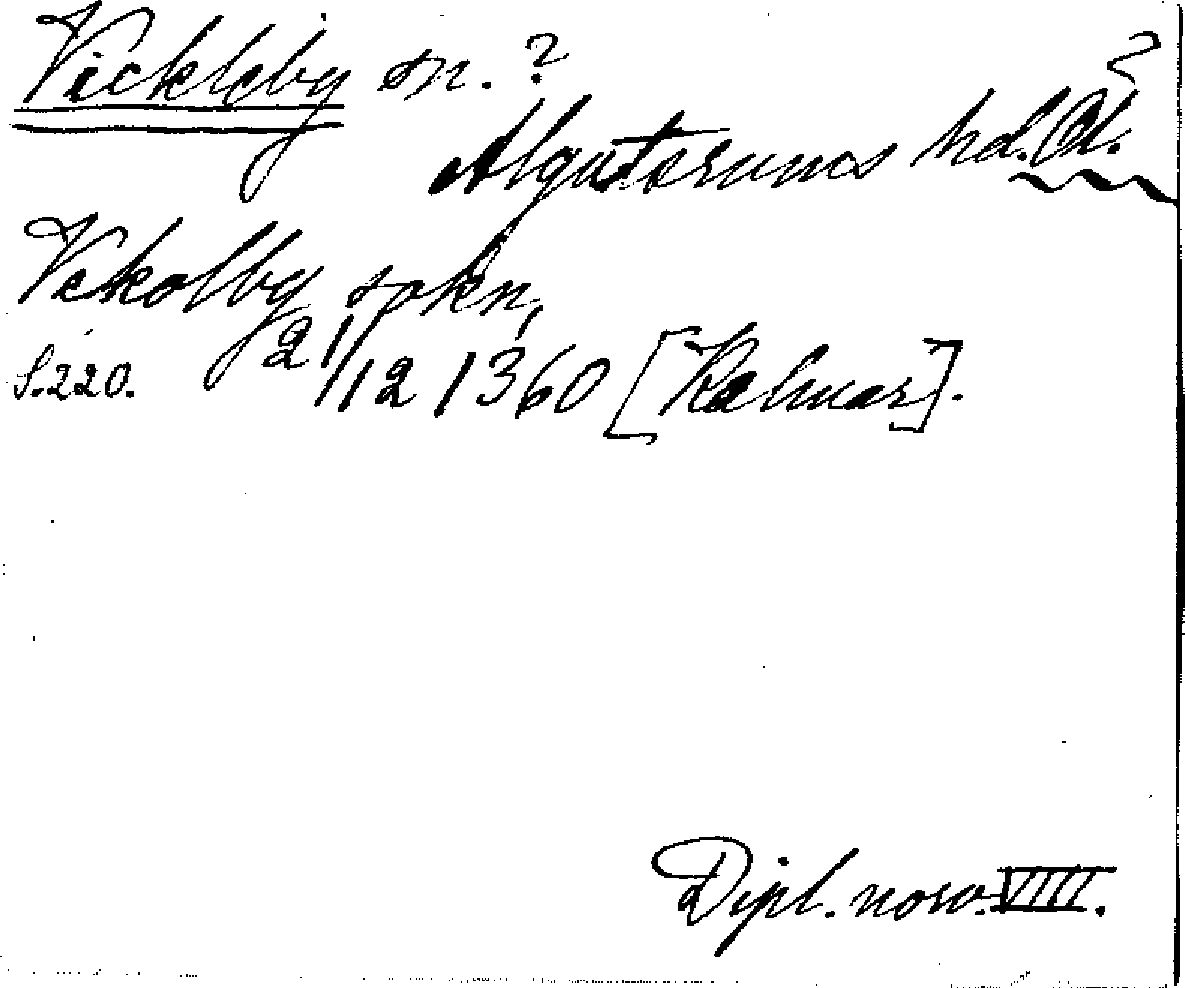 Vickleby sn. ?
?
Algutsrums hd. Öl.
Vekolby sokn,
S. 220. 21/12 1360 [Kalmar].
Dipl. norv. VIII.